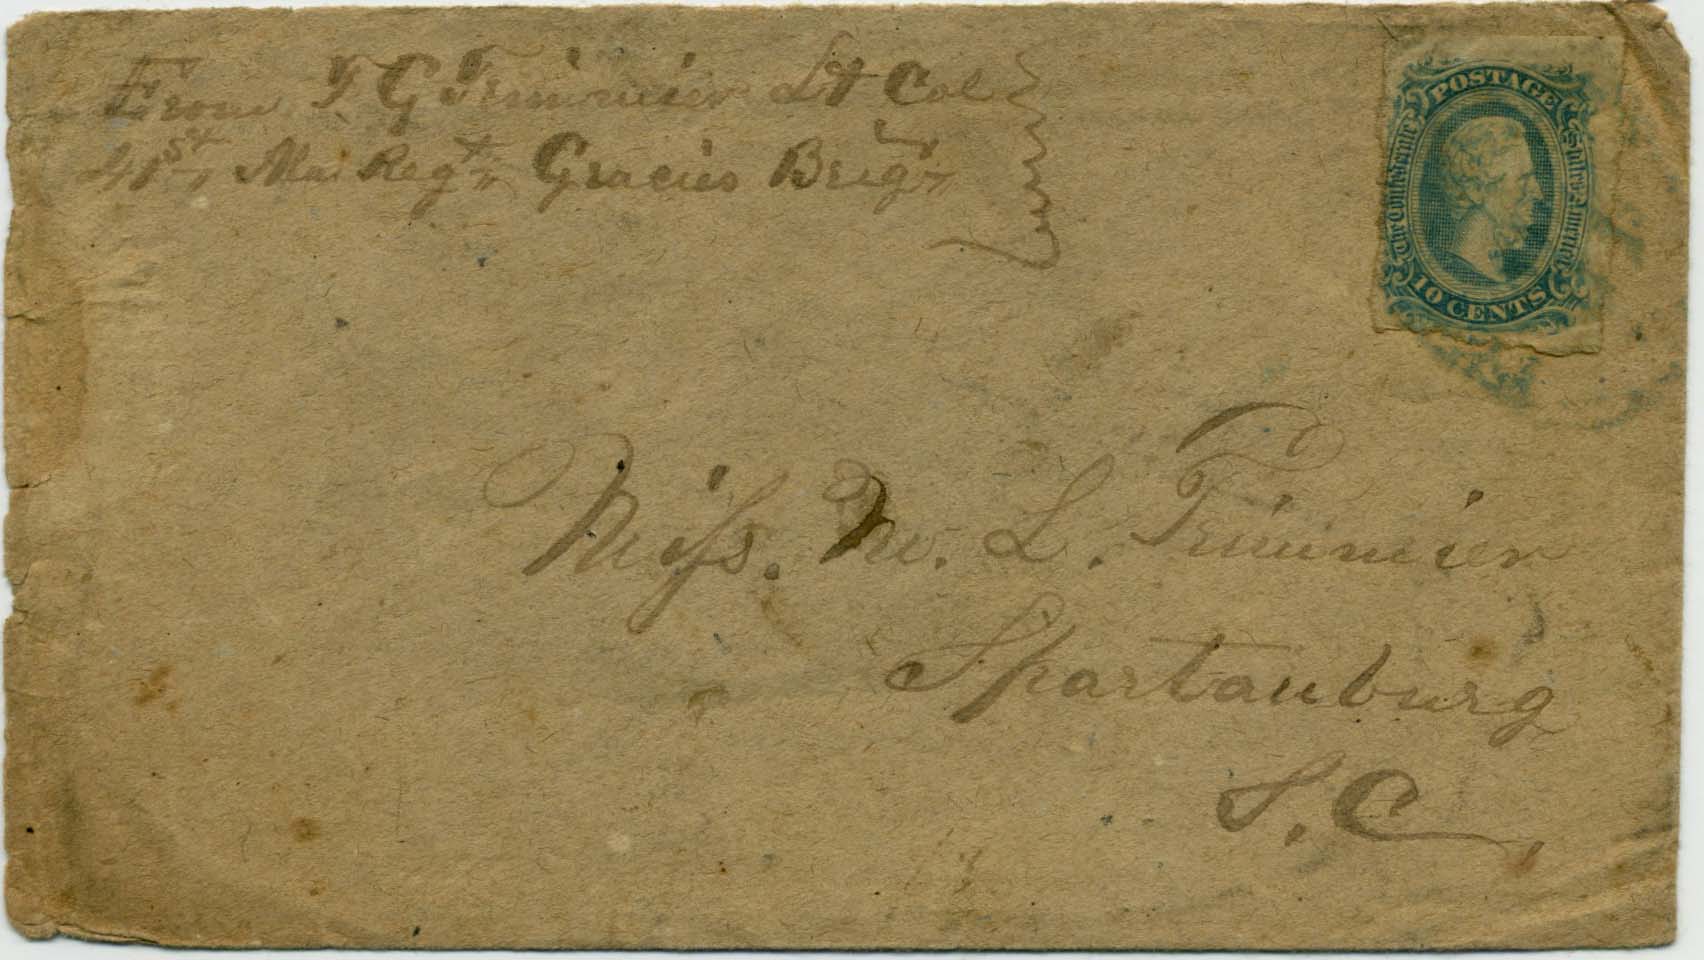 From T G Trimmier Lt Col
41st, Ala Regt, Gracies Brig,
POSTAGE
The Confederate States of America
10 CENTS
Miss. M. L. Trimmier
Spartanburg
S. C.